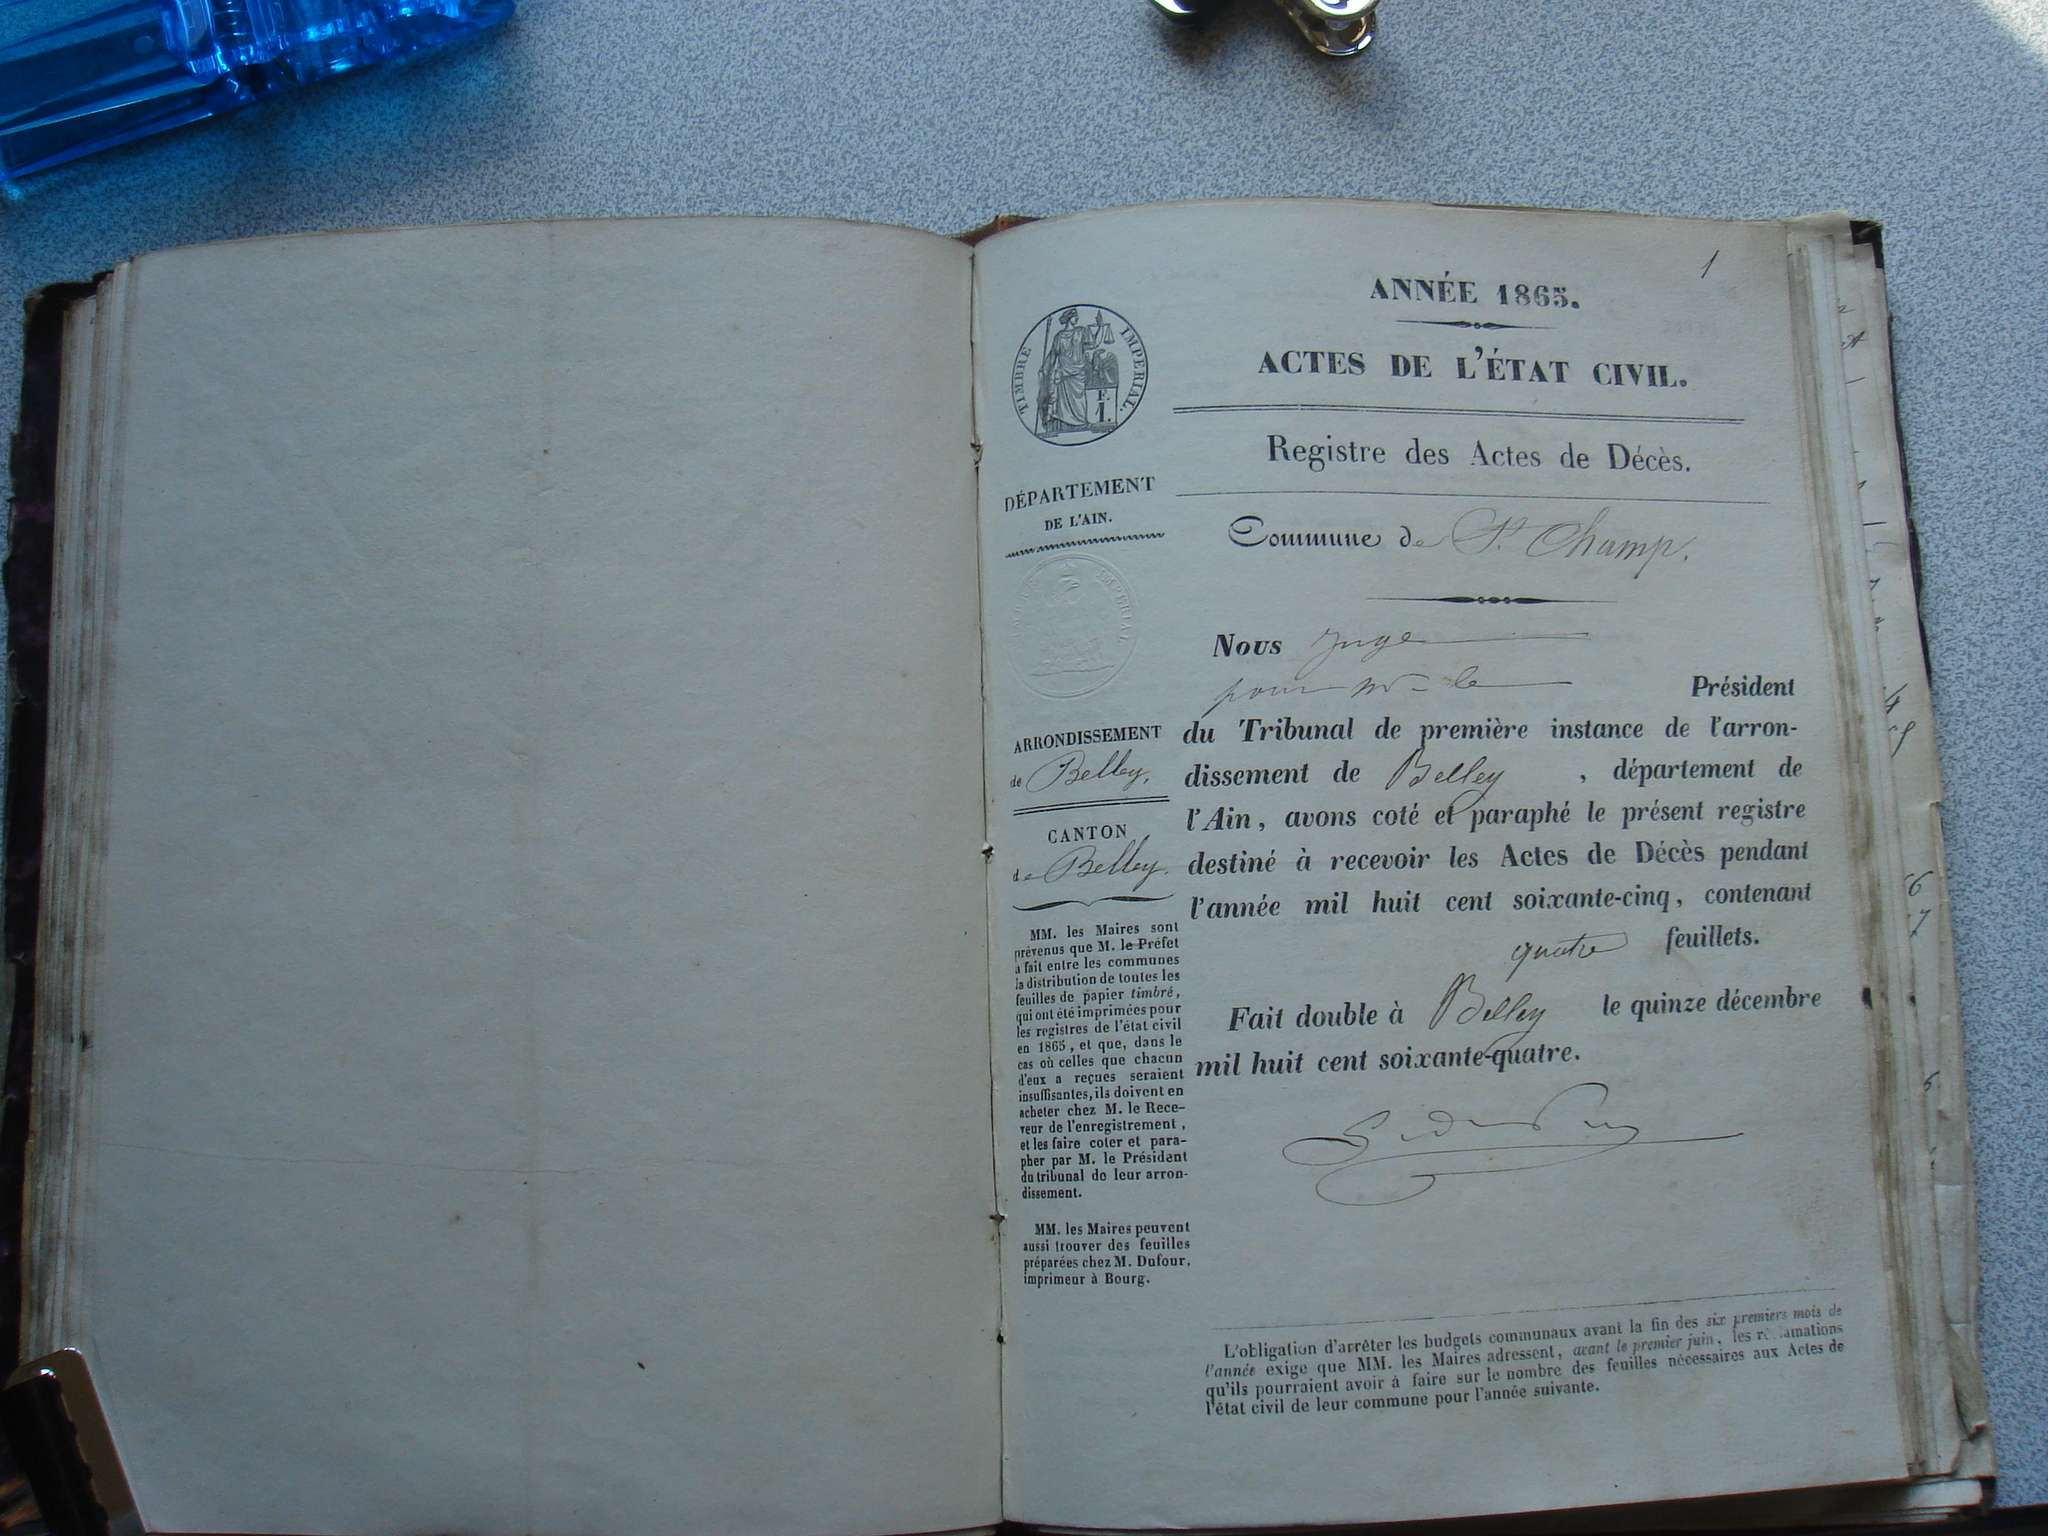 1
ANNÉE 1865.
ACTES DE L'ÉTAT CIVIL.
Registre des Actes de Décès.
Commune de St Champ.
TIMBRE IMPÉRIAL.
F.
1.
DÉPARTEMENT
DE L'AIN.
ARRONDISSEMENT
de Belley.
CANTON
de Belley.
MM. les Maires sont
prévenus que M. le Préfet
a fait entre les communes
la distribution de toutes les
feuilles de papier timbré,
qui ont été imprimées pour
les registres de l'état civil
en 1865, et que, dans le
cas où celles que chacun
d'eux a reçues seraient
insuffisantes, ils doivent en
acheter chez M. le Rece-
veur de l'enregistrement,
et les faire coter et para-
pher par M. le Président
du tribunal de leur arron-
dissement.
MM. les Maires peuvent
aussi trouver des feuilles
préparées chez M. Dufour,
imprimeur à Bourg.
Nous Juge
pour Mr le Président
du Tribunal de première instance de l'arron-
dissement de Belley, département de
l'Ain, avons coté et paraphé le présent registre
destiné à recevoir les Actes de Décès pendant
l'année mil huit cent soixante-cinq, contenant
quatre feuillets.
Fait double à Belley le quinze décembre
mil huit cent soixante-quatre.
L'obligation d'arrêter les budgets communaux avant la fin des six premiers mois de
l'année exige que MM. les Maires adressent, avant le premier juin, les réclamations
qu'ils pourraient avoir à faire sur le nombre des feuilles nécessaires aux Actes de
l'état civil de leur commune pour l'année suivante.